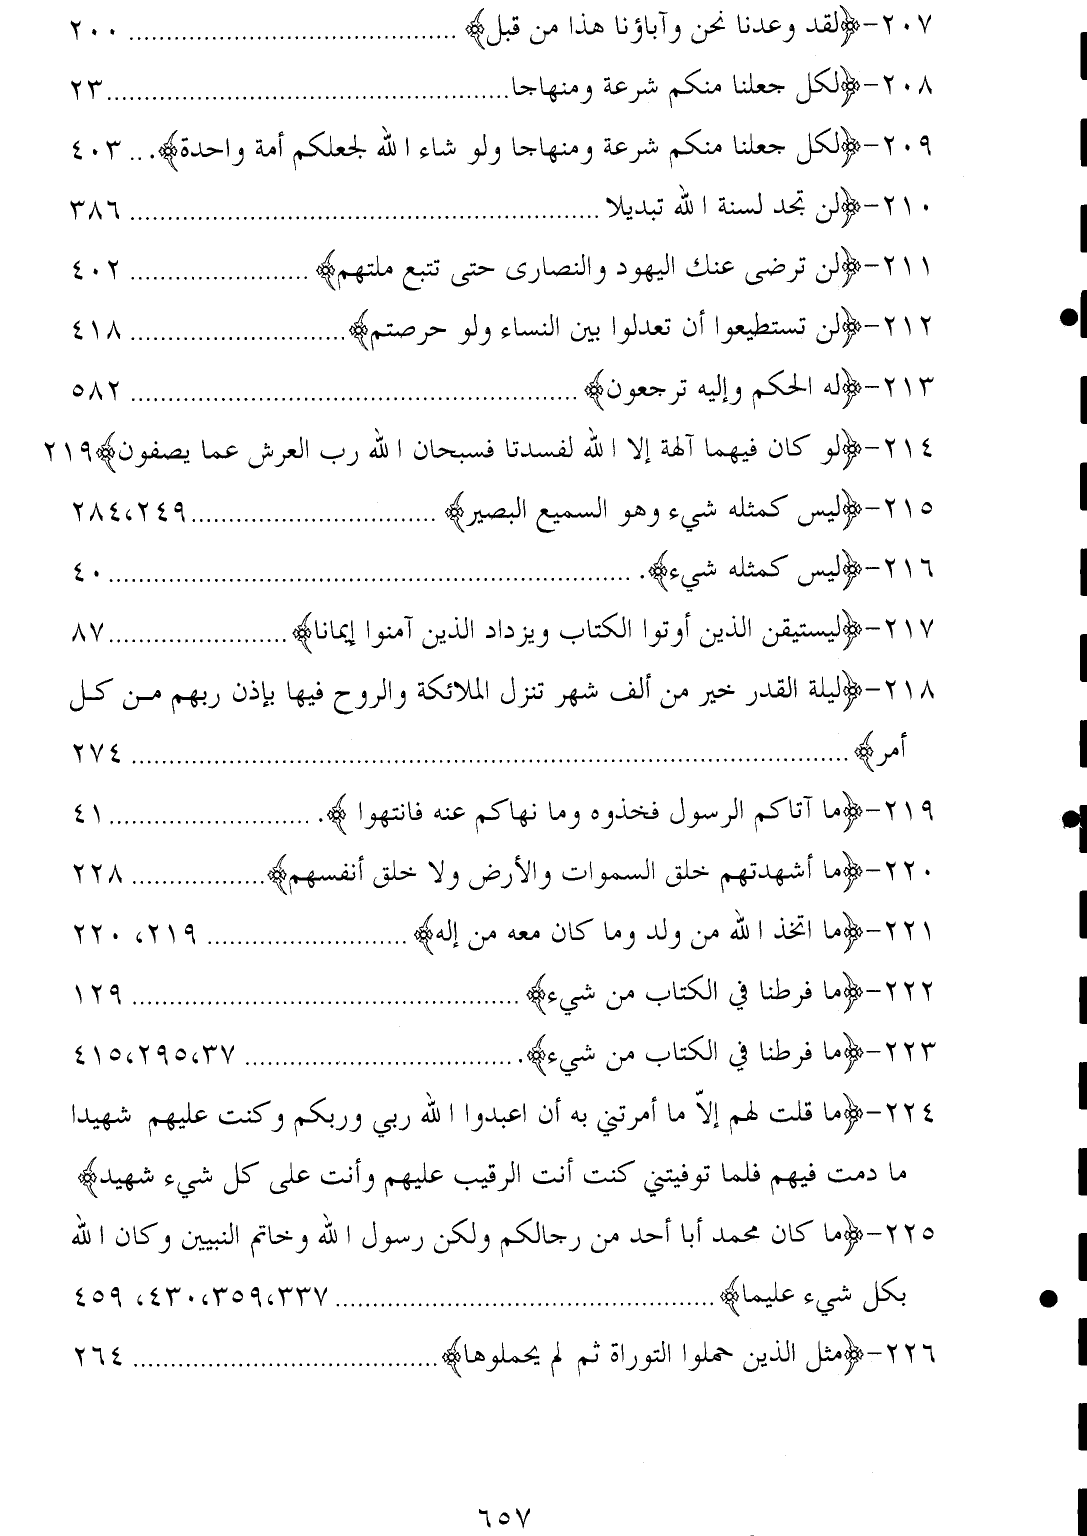 ٢٠٧-﴿لقد وعدنا نحن وآباؤنا هذا من قبل﴾ ............................................ ٢٠٠
٢٠٨-﴿لكل جعلنا منكم شرعة ومنهاجا......................................................٢٣
٢٠٩-﴿لكل جعلنا منكم شرعة ومنهاجا ولو شاء الله لجعلكم أمة واحدة﴾... ٤٠٣
٢١٠-﴿لن تجد لسنة الله تبديلا .............................................................. ٣٨٦
٢١١-﴿لن ترضى عنك اليهود والنصارى حتى تتبع ملتهم﴾ ........................ ٤٠٢
٢١٢-﴿لن تستطيعوا أن تعدلوا بين النساء ولو حرصتم﴾............................. ٤١٨
٢١٣-﴿له الحكم وإليه ترجعون﴾ ........................................................... ٥٨٢
٢١٤-﴿لو كان فيهما آلهة إلا الله لفسدتا فسبحان الله رب العرش عما يصفون﴾٢١٩
٢١٥-﴿ليس كمثله شيء وهو السميع البصير﴾ .................................٢٨٤،٢٤٩
٢١٦-﴿ليس كمثله شيء﴾. ......................................................................٤٠
٢١٧-﴿ليستيقن الذين أوتوا الكتاب ويزداد الذين آمنوا إيمانا﴾........................٨٧
٢١٨-﴿ليلة القدر خير من ألف شهر تنزل الملائكة والروح فيها بإذن ربهم مـن كـل
أمر﴾............................................................................................... ٢٧٤
٢١٩-﴿ما آتاكم الرسول فخذوه وما نهاكم عنه فانتهوا ﴾. ...........................٤١
٢٢٠-﴿ما أشهدتهم خلق السموات والأرض ولا خلق أنفسهم﴾.................. ٢٢٨
٢٢١-﴿ما اتخذ الله من ولد وما كان معه من إله﴾ ........................... ٢١٩، ٢٢٠
٢٢٢-﴿ما فرطنا في الكتاب من شيء﴾ .................................................... ١٢٩
٢٢٣-﴿ما فرطنا في الكتاب من شيء﴾. .................................... ٤١٥،٢٩٥،٣٧
٢٢٤-﴿ما قلت لهم إلاّ ما أمرتني به أن اعبدوا الله ربي وربكم وكنت عليهم شهيدا
ما دمت فيهم فلما توفيتني كنت أنت الرقيب عليهم وأنت على كل شيء شهيد﴾
٢٢٥-﴿ما كان محمد أبا أحد من رجالكم ولكن رسول الله وخاتم النبيين وكان الله
بكل شيء عليما﴾...................................................٣٣٧،٣٥٩،٤٣٠، ٤٥٩
٢٢٦-﴿مثل الذين حملوا التوراة ثم لم يحملوها﴾......................................... ٢٦٤
٦٥٧